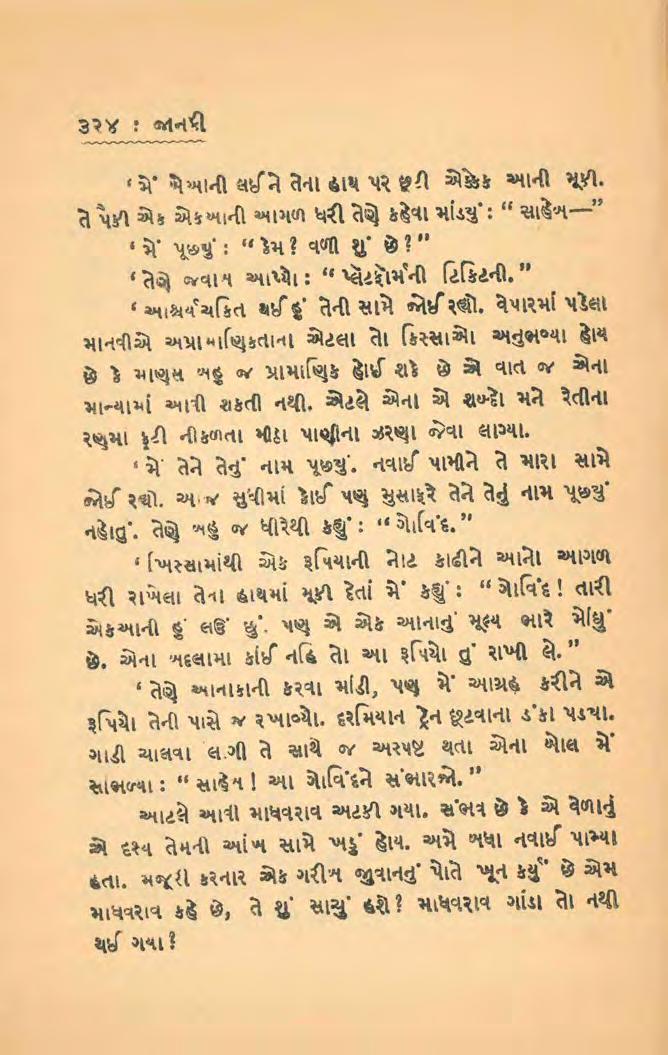 ૩૨૪ : જાનકી
‘ મેં બેઆની લઈ ને તેના હાથ પર છૂટી એક્કેક આની મૂકી.
તે પૈકી એક એકઆની આગળ ધરી તેણે કહેવા માંડયું : “ સાહેબ—”
‘ મેં પૂછયું : “ કેમ ? વળી શું છે ? ”
‘ તેણે જવાબ આપ્યો : “ પ્લૅટફૉર્મની ટિકિટની. ”
‘ આશ્ચર્યચકિત થઈ હું તેની સામે જોઈ રહ્યો. વેપારમાં પડેલા
માનવીએ અપ્રામાણિકતાના એટલા તો કિસ્સાઓ અનુભવ્યા હોય
છે કે માણસ બહુ જ પ્રામાણિક હોઈ શકે છે એ વાત જ એના
માન્યામાં આવી શકતી નથી. એટલે એના એ શબ્દો મને રેતીના
રણમા ફૂટી નીકળતા મીઠા પાણીના ઝરણા જેવા લાગ્યા.
‘ મેં તેને તેનું નામ પૂછયું. નવાઈ પામીને તે મારા સામે
જોઈ રહ્યો. આજ સુધીમાં કોઈ પણ મુસાફરે તેને તેનું નામ પૂછયું
નહોતું. તેણે બહુ જ ધીરેથી કહ્યું : “ ગોવિંદ. ”
‘ ખિસ્સામાંથી એક રૂપિયાની નોટ કાઢીને આનો આગળ
ધરી રાખેલા તેના હાથમાં મૂકી દેતાં મેં કહ્યું : “ ગોવિંદ ! તારી
એકઆની હું લઉં છું. પણ એ એક આનાનું મૂલ્ય ભારે મોંઘું
છે. એના બદલામા કાંઈ નહિ તો આ રૂપિયો તું રાખી લે. ”
‘ તેણે આનાકાની કરવા માંડી, પણ મેં આગ્રહ કરીને એ
રૂપિયો તેની પાસે જ રખાવ્યો. દરમિયાન ટ્રેન છૂટવાના ડંકા પડયા.
ગાડી ચાલવા લાગી તે સાથે જ અસ્પષ્ટ થતા એના બોલ મેં
સાંભળ્યા : “ સાહેબ ! આ ગોવિંદને સંભારજો. ”
આટલે આવી માધવરાવ અટકી ગયા. સંભવ છે કે એ વેળાનું
એ દૃશ્ય તેમની આંખ સામે ખડું હોય. અમે બધા નવાઈ પામ્યા
હતા. મજૂરી કરનાર એક ગરીબ જુવાનનું પોતે ખૂન કર્યું છે એમ
માધવરાવ કહે છે, તે શું સાચું હશે ? માધવરાવ ગાંડા તો નથી
થઈ ગયા ?